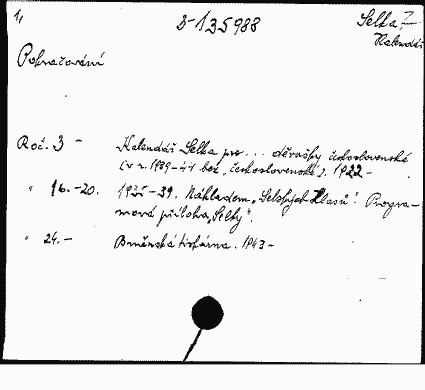 1, 3-135988 Selka?
Kalendář
Pokračování
Roč. 3 - Kalendář Selka pro... děvušky československé
(v r. 1939-44 bez „československé“). 1922 -
" 16.-20. 1935-39. Nákladem „Selských Hlasů“. Progra-
mová příloha „Selky“.
" 24.- Brněnská tiskárna. 1943 -